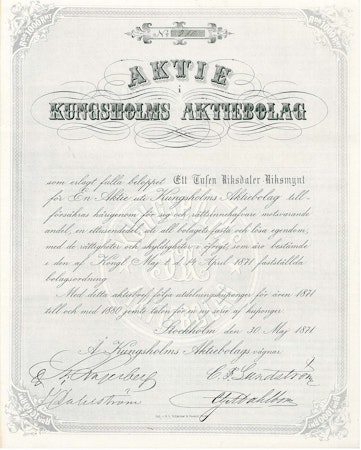 No
AKTIE
i
KUNGSHOLMS AKTIEBOLAG
som erlagt fulla beloppet Ett Tusen Riksdaler Riksmynt
för En Aktie uti Kungsholms Aktiebolag till-
försäkras härigenom för sig och rättsinnehafvare motsvarande
andel, en ettusendedel, uti all bolagets fasta och lösa egendom,
med de rättigheter och skyldigheter i öfrigt, som äro bestämde
i den af Kongl. Maj:t d. 14 April 1871 fastställda
bolagsordning.
Med detta aktiebref följa utdelningskuponger för åren 1871
till och med 1880 jemte talon för en ny serie af kuponger.
Stockholm den 30 Maj 1871
Å Kungsholms Aktiebolags vägnar
Hagerberg C. F. Sundström
Dahlström Dahlbom